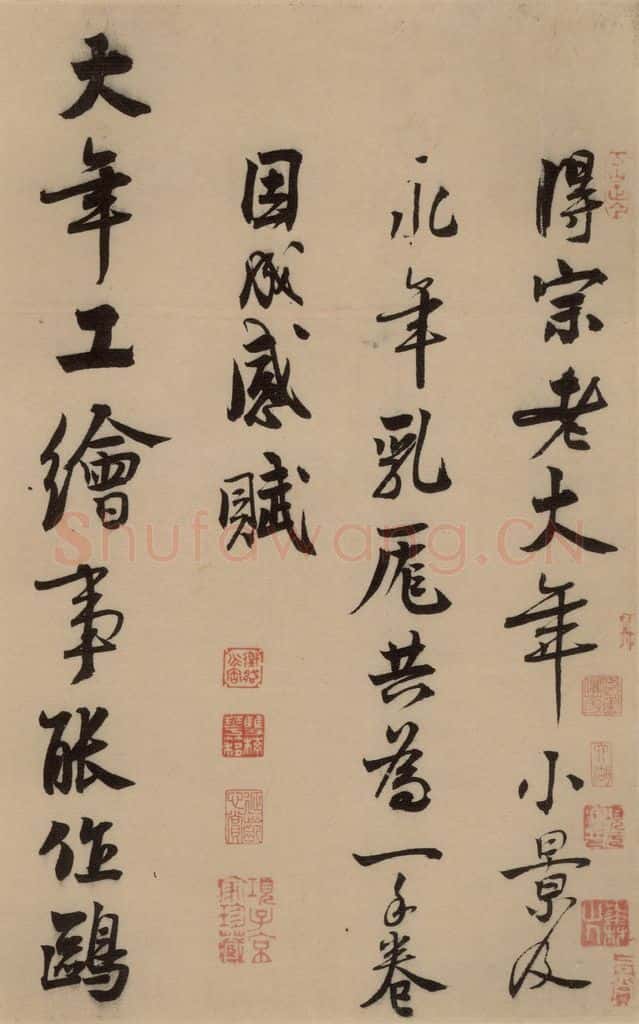 得宗老大年小景及
永年乳厖共為一手卷
因成感賦
大年工繪事能作鷗
項子京家珍藏
Shufawang.CN